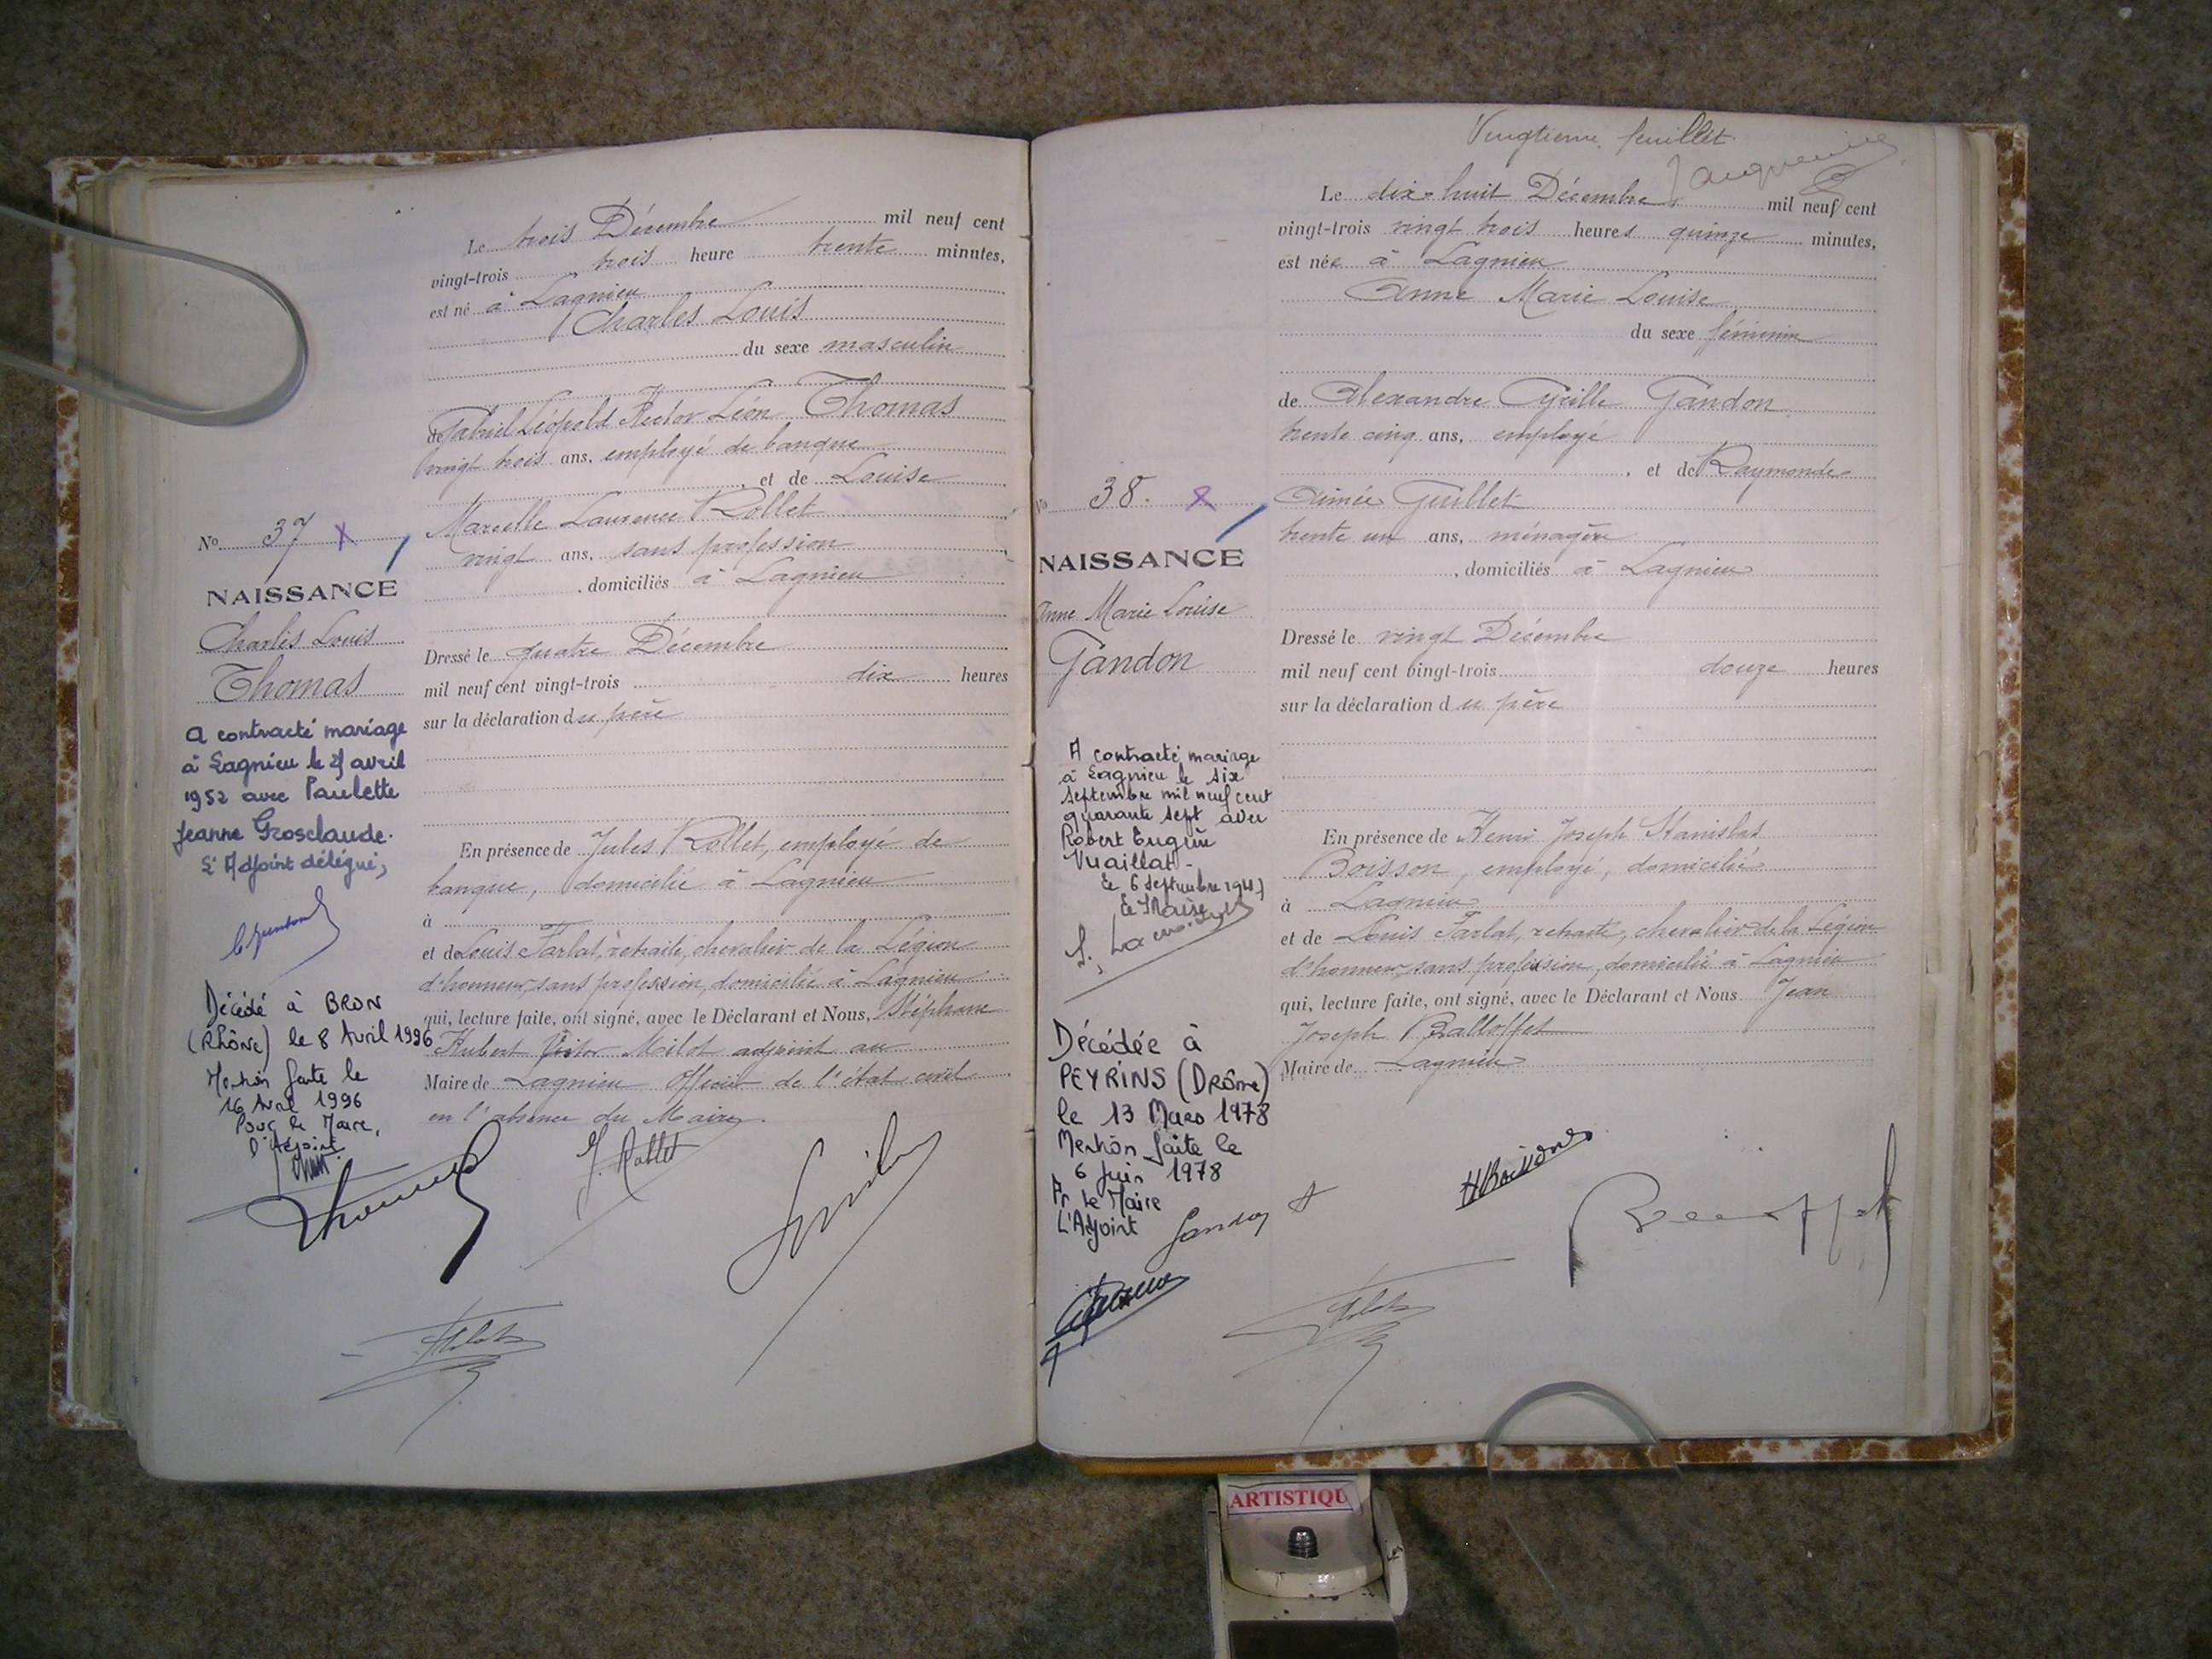 Le trois Décembre mil neuf cent
vingt-trois trois heure trente minutes,
est né à Lagnieu
Charles Louis
du sexe masculin
de Gabriel Léopold Hector Léon Thomas
vingt trois ans, employé de banque
, et de Louise
Marcelle Laurence Rollet
vingt ans, sans profession
, domiciliés à Lagnieu
Dressé le quatre Décembre
mil neuf cent vingt-trois dix heures
sur la déclaration du père
En présence de Jules Rollet, employé de
banque, domicilié à Lagnieu
à
et de Louis Farlat, retraité, chevalier de la Légion
d'honneur, sans profession, domicilié à Lagnieu
qui, lecture faite, ont signé, avec le Déclarant et Nous, Stéphane
Hubert Victor Milot adjoint au
Maire de Lagnieu Officier de l'état civil
en l'absence du Maire.
No 37
NAISSANCE
Charles Louis
Thomas
A contracté mariage
à Lagnieu le avril
1952 avec Paulette
Jeanne Grosclaude.
L'Adjoint délégué,
Décédé à BRON
(Rhône) le 8 Avril 1996
Mention faite le
16 Avril 1996
Pour le Maire,
l'Adjoint
Thomas
J. Rollet
Vingtième feuillet
Le dix-huit Décembre mil neuf cent
vingt-trois vingt trois heures quinze minutes,
est née à Lagnieu
Anne Marie Louise
du sexe féminin
de Alexandre Cyrille Gandon
trente cinq ans, employé
, et de Raymonde
Aimée Guillet
trente un ans, ménagère
, domiciliés à Lagnieu
Dressé le vingt Décembre
mil neuf cent vingt-trois douze heures
sur la déclaration du père
En présence de Henri Joseph Stanislas
Boisson, employé, domicilié
à Lagnieu
et de Louis Farlat, retraité, chevalier de la Légion
d'honneur, sans profession, domicilié à Lagnieu
qui, lecture faite, ont signé, avec le Déclarant et Nous Jean
Joseph Balloffet
Maire de Lagnieu
No 38.
NAISSANCE
Anne Marie Louise
Gandon
A contracté mariage
à Lagnieu le six
septembre mil neuf cent
quarante sept avec
Robert Eugène
Vuaillat.
Le 6 septembre 1947
Le Maire
Décédée à
PEYRINS (DRôme)
le 13 Mars 1978
Mention faite le
6 Juin 1978
Pr le Maire
L'Adjoint
Gandon
HBoisson
Balloffet
ARTISTIQU